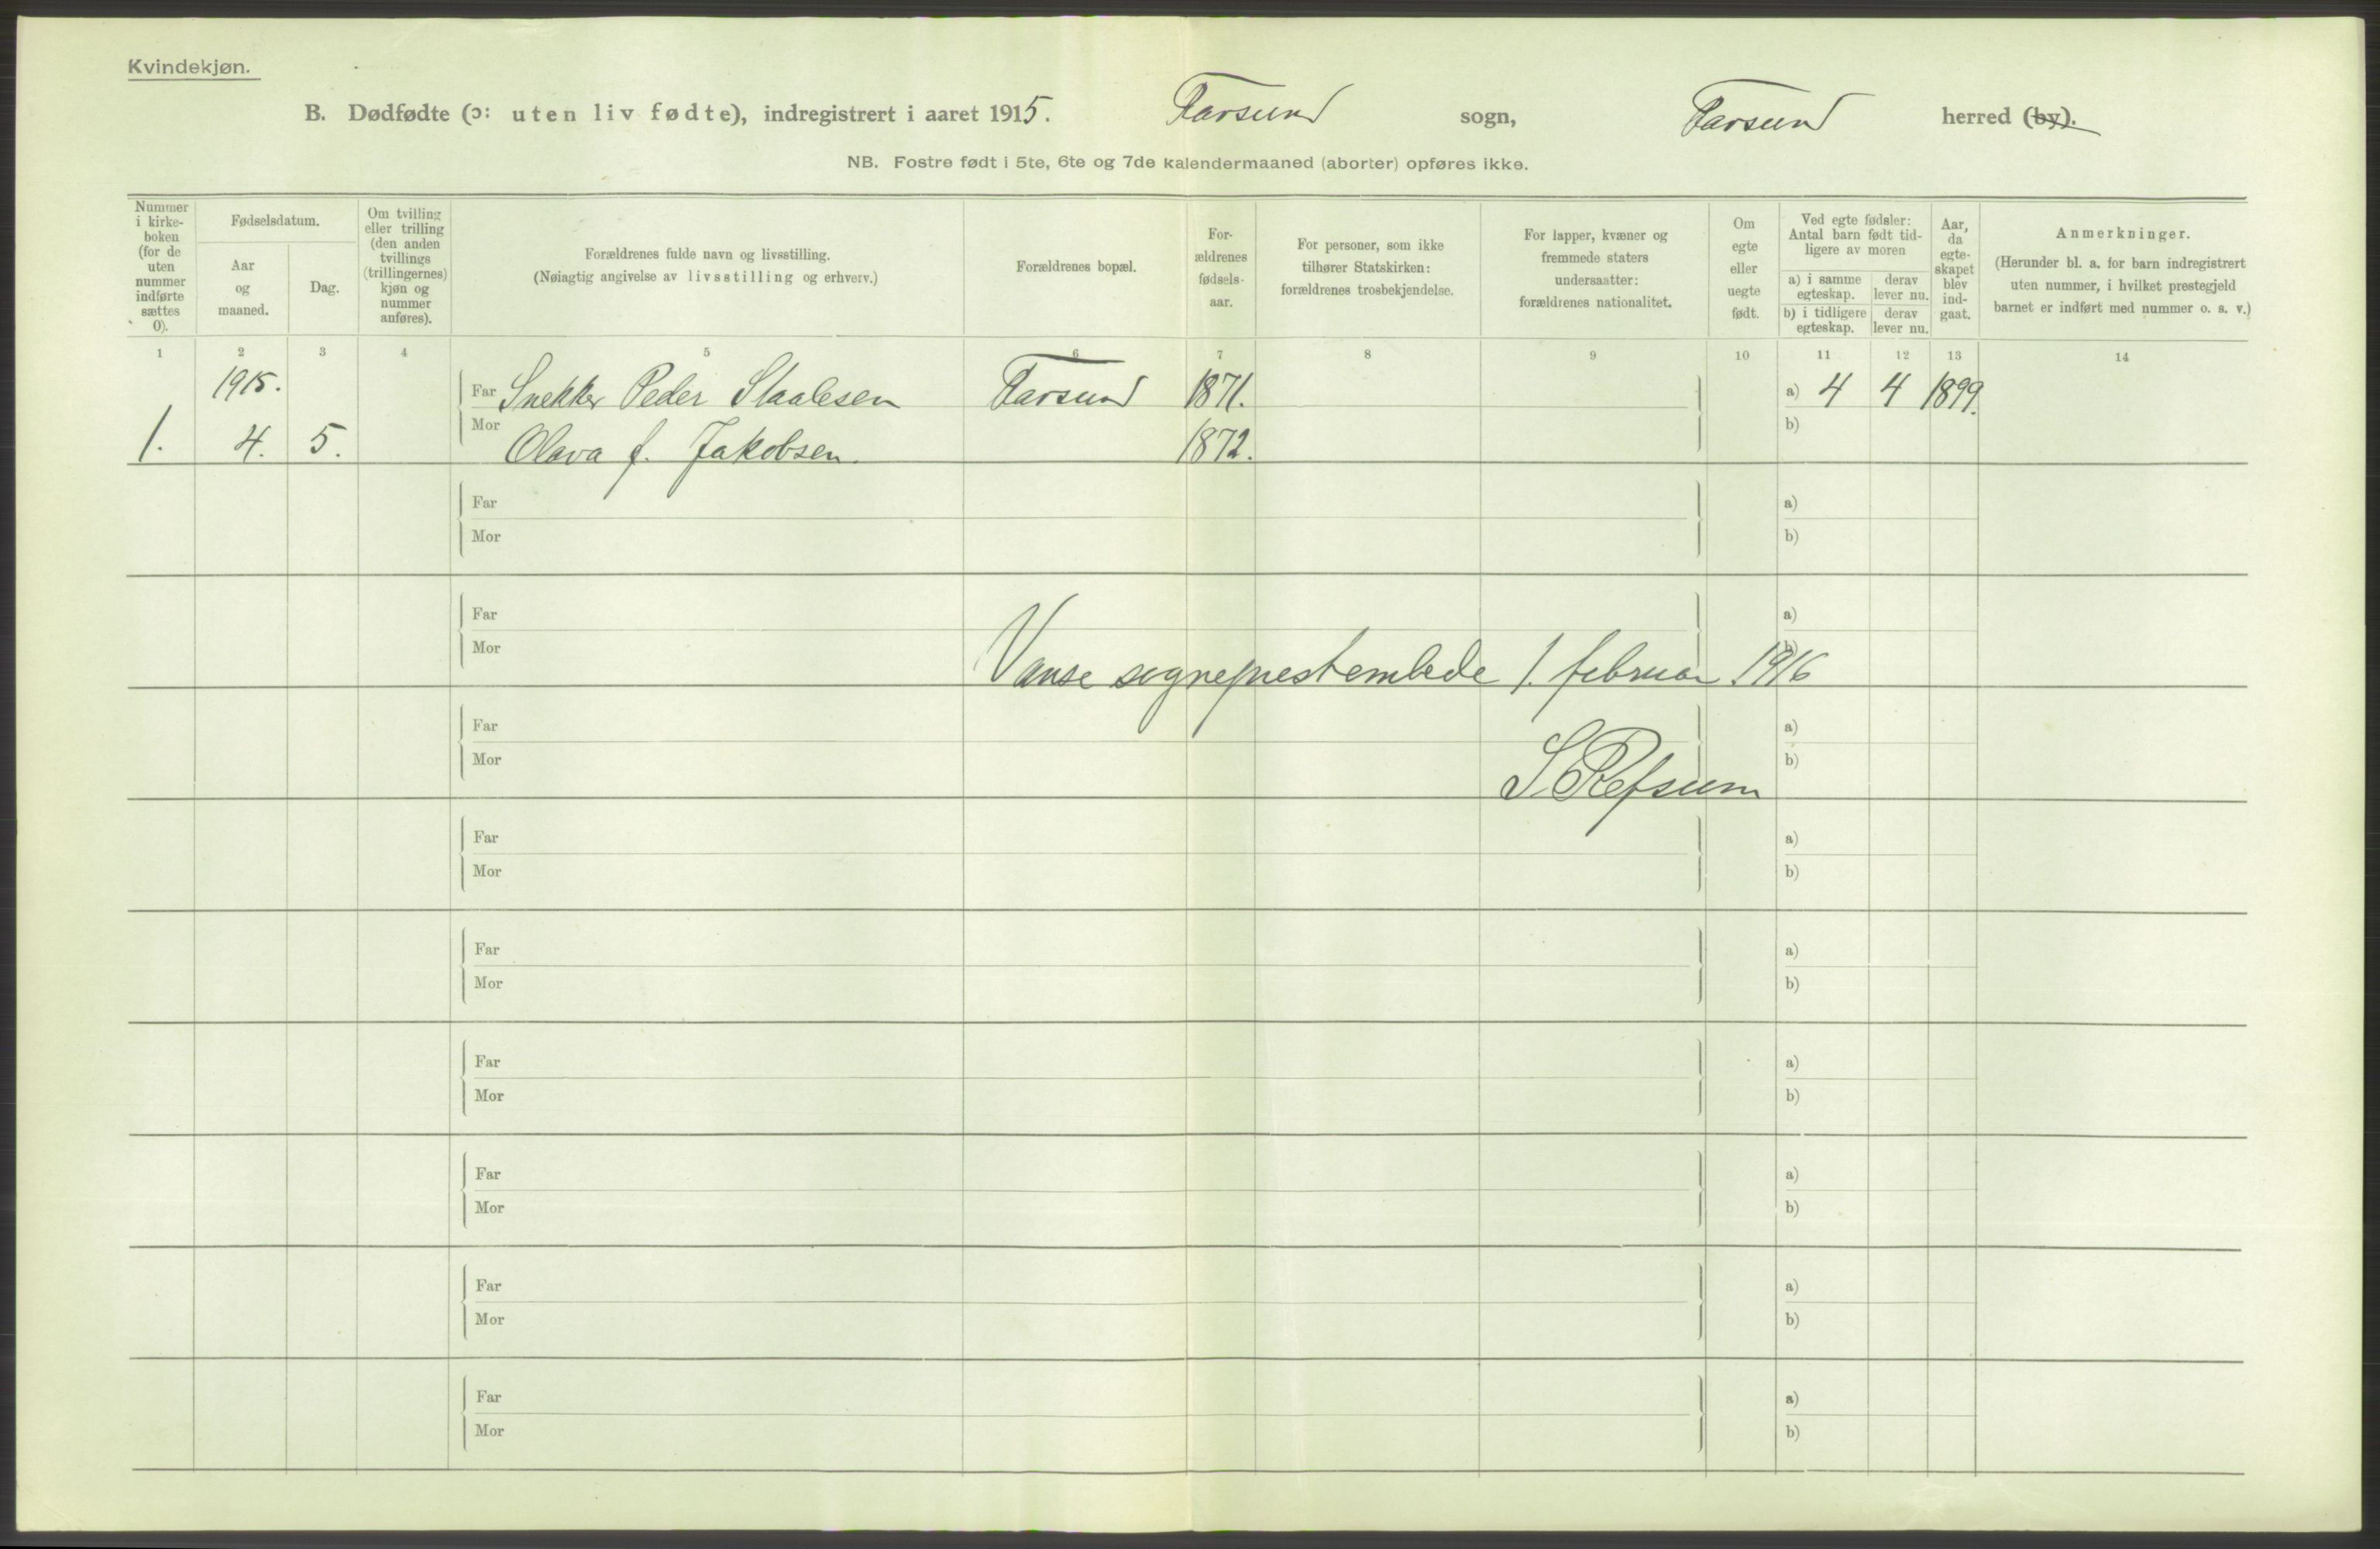 Kvindekjøn.
B. Dødfødte (ɔ: uten liv fødte), indregistrert i aaret 1915. Farsund sogn, Farsund herred (by).
NB. Fostre født i 5te, 6te og 7de kalendermaaned (aborter) opføres ikke.
Nummer i kirke-boken (for de uten nummer indførte sættes 0).
Fødselsdatum.
Aar og maaned.
Dag.
Om tvilling eller trilling (den anden tvillings (trillingernes) kjøn og nummer anføres).
Forældrenes fulde navn og livsstilling.
(Nøiagtig angivelse av livsstilling og erhverv.)
Forældrenes bopæl.
For-ældrenes fødsels-aar.
For personer, som ikke tilhører Statskirken: forældrenes trosbekjendelse.
For lapper, kvæner og fremmede staters undersaatter: forældrenes nationalitet.
Om egte eller uegte født.
Ved egte fødsler: Antal barn født tid-ligere av moren
a) i samme egteskap.
derav lever nu.
b) i tidligere egteskap.
derav lever nu.
Aar, da egte-skapet blev ind-gaat.
Anmerkninger.
(Herunder bl. a. for barn indregistrert uten nummer, i hvilket prestegjeld barnet er indført med nummer o. s. v.)
1 2 3 4 5 6 7 8 9 10 11 12 13 14
1915. Far Snekker Peder Staalesen Farsund 1871. a) 4 4 1899.
1. 4. 5. Mor Olava f. Jakobsen. 1872. b)
Far a)
Mor b)
Far a)
Mor b)
Vanse sogneprestembede 1. februar 1916
Far a)
Mor b)
S. Refsum
Far a)
Mor b)
Far a)
Mor b)
Far a)
Mor b)
Far a)
Mor b)
Far a)
Mor b)
Far a)
Mor b)